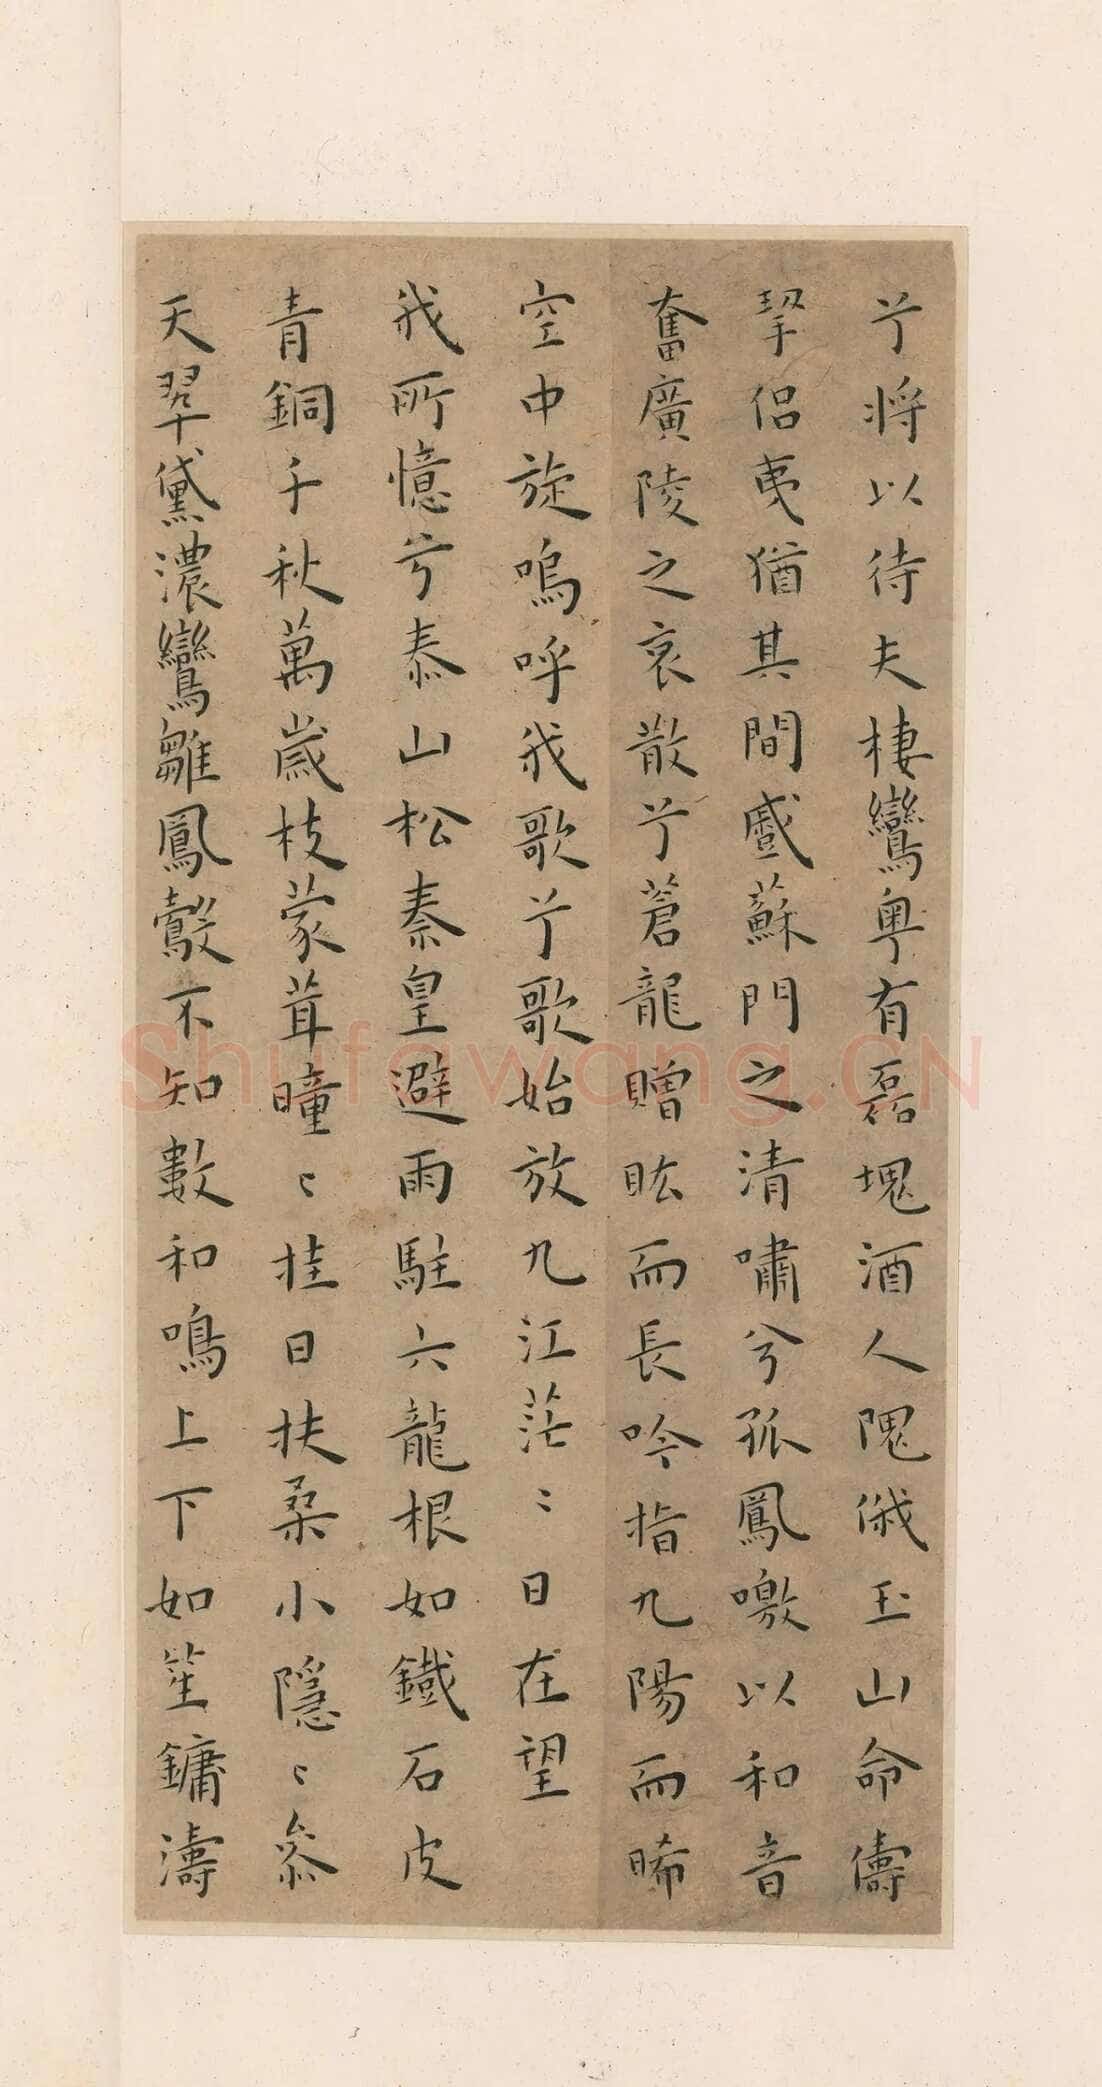 兮將以待夫棲鸞粵有磊塊酒人隗俄玉山命儔
挈侶夷猶其間感蘇門之清嘯兮孤鳳噭以和音
奮廣陵之哀散兮蒼龍贈眩而長吟指九陽而晞
空中旋嗚呼我歌兮歌始放九江茫〻日在望
我所憶兮泰山松秦皇避雨駐六龍根如鐵石皮
青銅千秋萬歲枝蒙茸曈〻挂日扶桑小隱〻參
天翠黛濃鸞雛鳳鷇不知數和鳴上下如笙鏞濤
Shufawang.CN